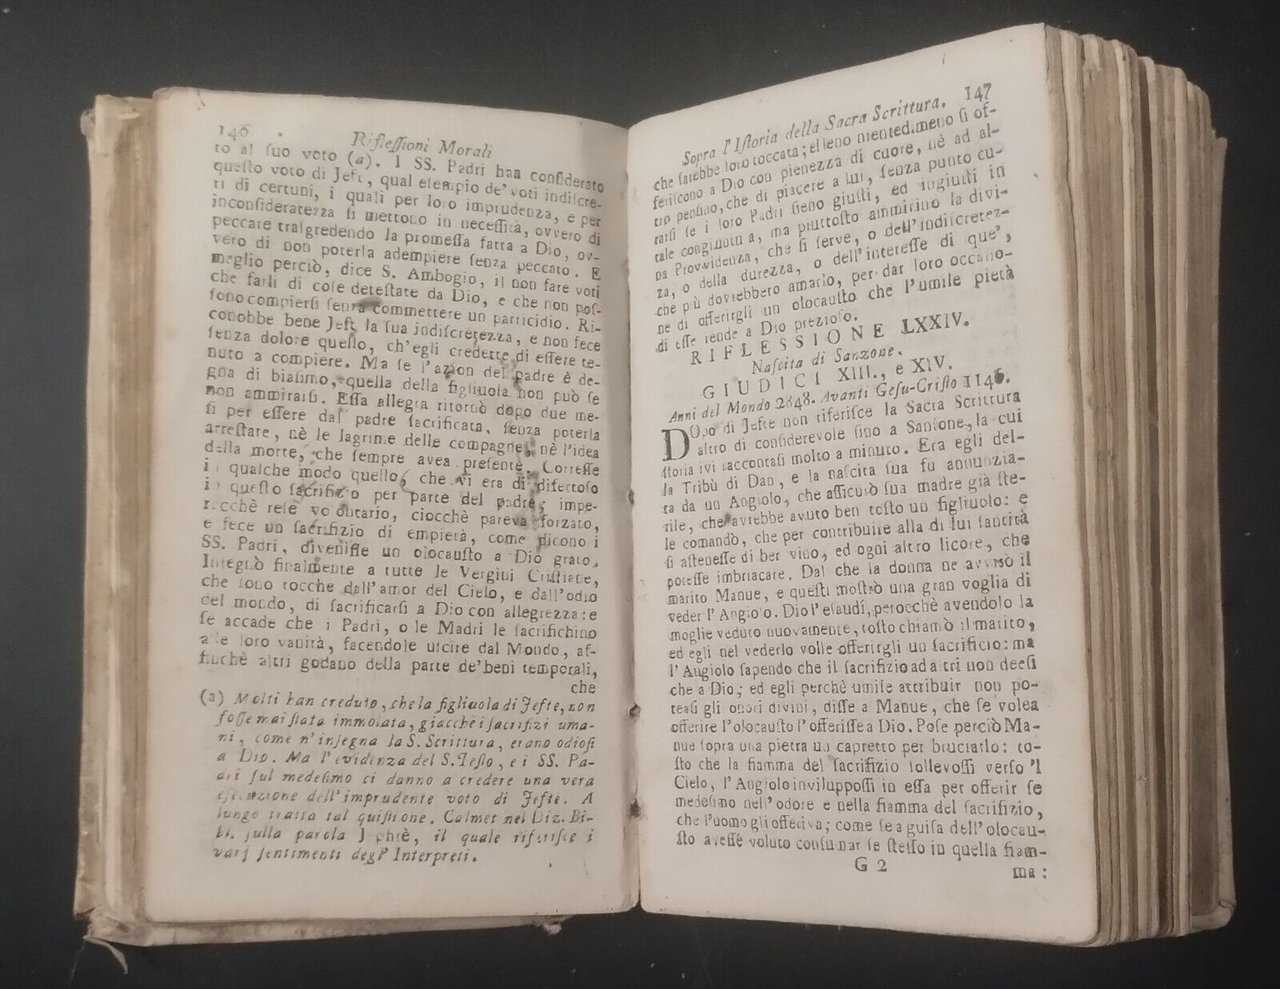 146
Rifleſſioni Morali
to al ſuo voto (a). I SS. Padri han conſiderato
queſto voto di Jeft, qual eſempio de' voti indiſcre-
ti di certuni, i quali per loro imprudenza, e per
inconſideratezza ſi mettono in neceſſità, ovvero di
peccare traſgredendo la promeſſa fatta a Dio, ov-
vero di non poterla adempiere ſenza peccato. E
meglio perciò, dice S. Ambogio, il non fare voti
che farli di coſe deteſtate da Dio, e che non poſ-
ſono compierſi ſenza commettere un parricidio. Ri-
conobbe bene Jeft la ſua indiſcretezza, e non fece
ſenza dolore queſto, ch'egli credette di eſſere te-
nuto a compiere. Ma ſe l'azion del padre è de-
gna di biaſimo, quella della figliuola non può ſe
non ammirarſi. Eſſa allegra ritornò dopo due me-
ſi per eſſere dal padre ſacrificata, ſenza poterla
arreſtare, nè le lagrime delle compagne, nè l'idea
della morte, che ſempre avea preſente. Correſſe
in qualche modo quello, che vi era di difettoſo
in queſto ſacrifizio per parte del padre; impe-
rocchè reſe volontario, ciocchè pareva forzato,
e fece un ſacrifizio di empietà, come dicono i
SS. Padri, diveniſſe un olocauſto a Dio grato.
Inſegnò finalmente a tutte le Vergini Criſtiane,
che ſono tocche dall'amor del Cielo, e dall'odio
del mondo, di ſacrificarſi a Dio con allegrezza: e
ſe accade che i Padri, o le Madri le ſacrifichino
alle loro vanità, facendole uſcire dal Mondo, af-
finchè altri godano della parte de'beni temporali,
che
(a) Molti han creduto, che la figliuola di Jefte, non
foſſe mai ſtata immolata, giacchè i ſacrifizi uma-
ni, come n'inſegna la S. Scrittura, erano odioſi
a Dio. Ma l'evidenza del S. Teſto, e i SS. Pa-
dri ſul medeſimo ci danno a credere una vera
eſecuzione dell'imprudente voto di Jefte. A
lungo tratta tal quiſtione. Calmet nel Diz. Bi-
bl. ſulla parola Jephtè, il quale riferiſce i
varj ſentimenti degl' Interpreti.
Sopra l'Iſtoria della Sacra Scrittura. 147
che ſarebbe loro toccata; elleno nientedimeno ſi of-
feriſcono a Dio con pienezza di cuore, nè ad al-
tro penſino, che di piacere a lui, ſenza punto cu-
rarſi ſe i loro Padri ſieno giuſti, ed ingiuſti in
tale congiuntura, ma piuttoſto ammirino la divi-
na Provvidenza, che ſi ſerve, o dell'indiſcretez-
za, o della durezza, o dell'intereſſe di que',
che più dovrebbero amarlo, per dar loro occaſio-
ne di offerirgli un olocauſto che l'umile pietà
di eſſe rende a Dio prezioſo.
RIFLESSIONE LXXIV.
Naſcita di Sanzone.
GIUDICI XIII., e XIV.
Anni del Mondo 2848. Avanti Geſu-Criſto 1146.
DOpo di Jefte non riferiſce la Sacra Scrittura
altro di conſiderevole ſino a Sanſone, la cui
ſtoria ivi raccontaſi molto a minuto. Era egli del-
la Tribù di Dan, e la naſcita ſua fu annunzia-
ta da un Angiolo, che aſſicurò ſua madre già ſte-
rile, che avrebbe avuto ben toſto un figliuolo: e
le comandò, che per contribuire alla di lui ſantità
ſi aſteneſſe di ber vino, ed ogni altro licore, che
poteſſe imbriacare. Dal che la donna ne avvisò il
marito Manue, e queſti moſtrò una gran voglia di
veder l'Angiolo. Dio l'eſaudì, perocchè avendolo la
moglie veduto nuovamente, toſto chiamò il marito,
ed egli nel vederlo volle offerirgli un ſacrificio: ma
l'Angiolo ſapendo che il ſacrifizio ad altri non deeſi
che a Dio; ed egli perchè umile attribuir non po-
teaſi gli onori divini, diſſe a Manue, che ſe volea
offerire l'olocauſto l'offeriſſe a Dio. Poſe perciò Ma-
nue ſopra una pietra un capretto per bruciarlo: to-
ſto che la fiamma del ſacrifizio ſollevoſſi verſo 'l
Cielo, l'Angiolo inviluppoſſi in eſſa per offerir ſe
medeſimo nell'odore e nella fiamma del ſacrifizio,
che l'uomo gli offeriva; come ſe a guiſa dell'olocau-
ſto aveſſe voluto conſumar ſe ſteſſo in quella fiam-
G 2
ma: